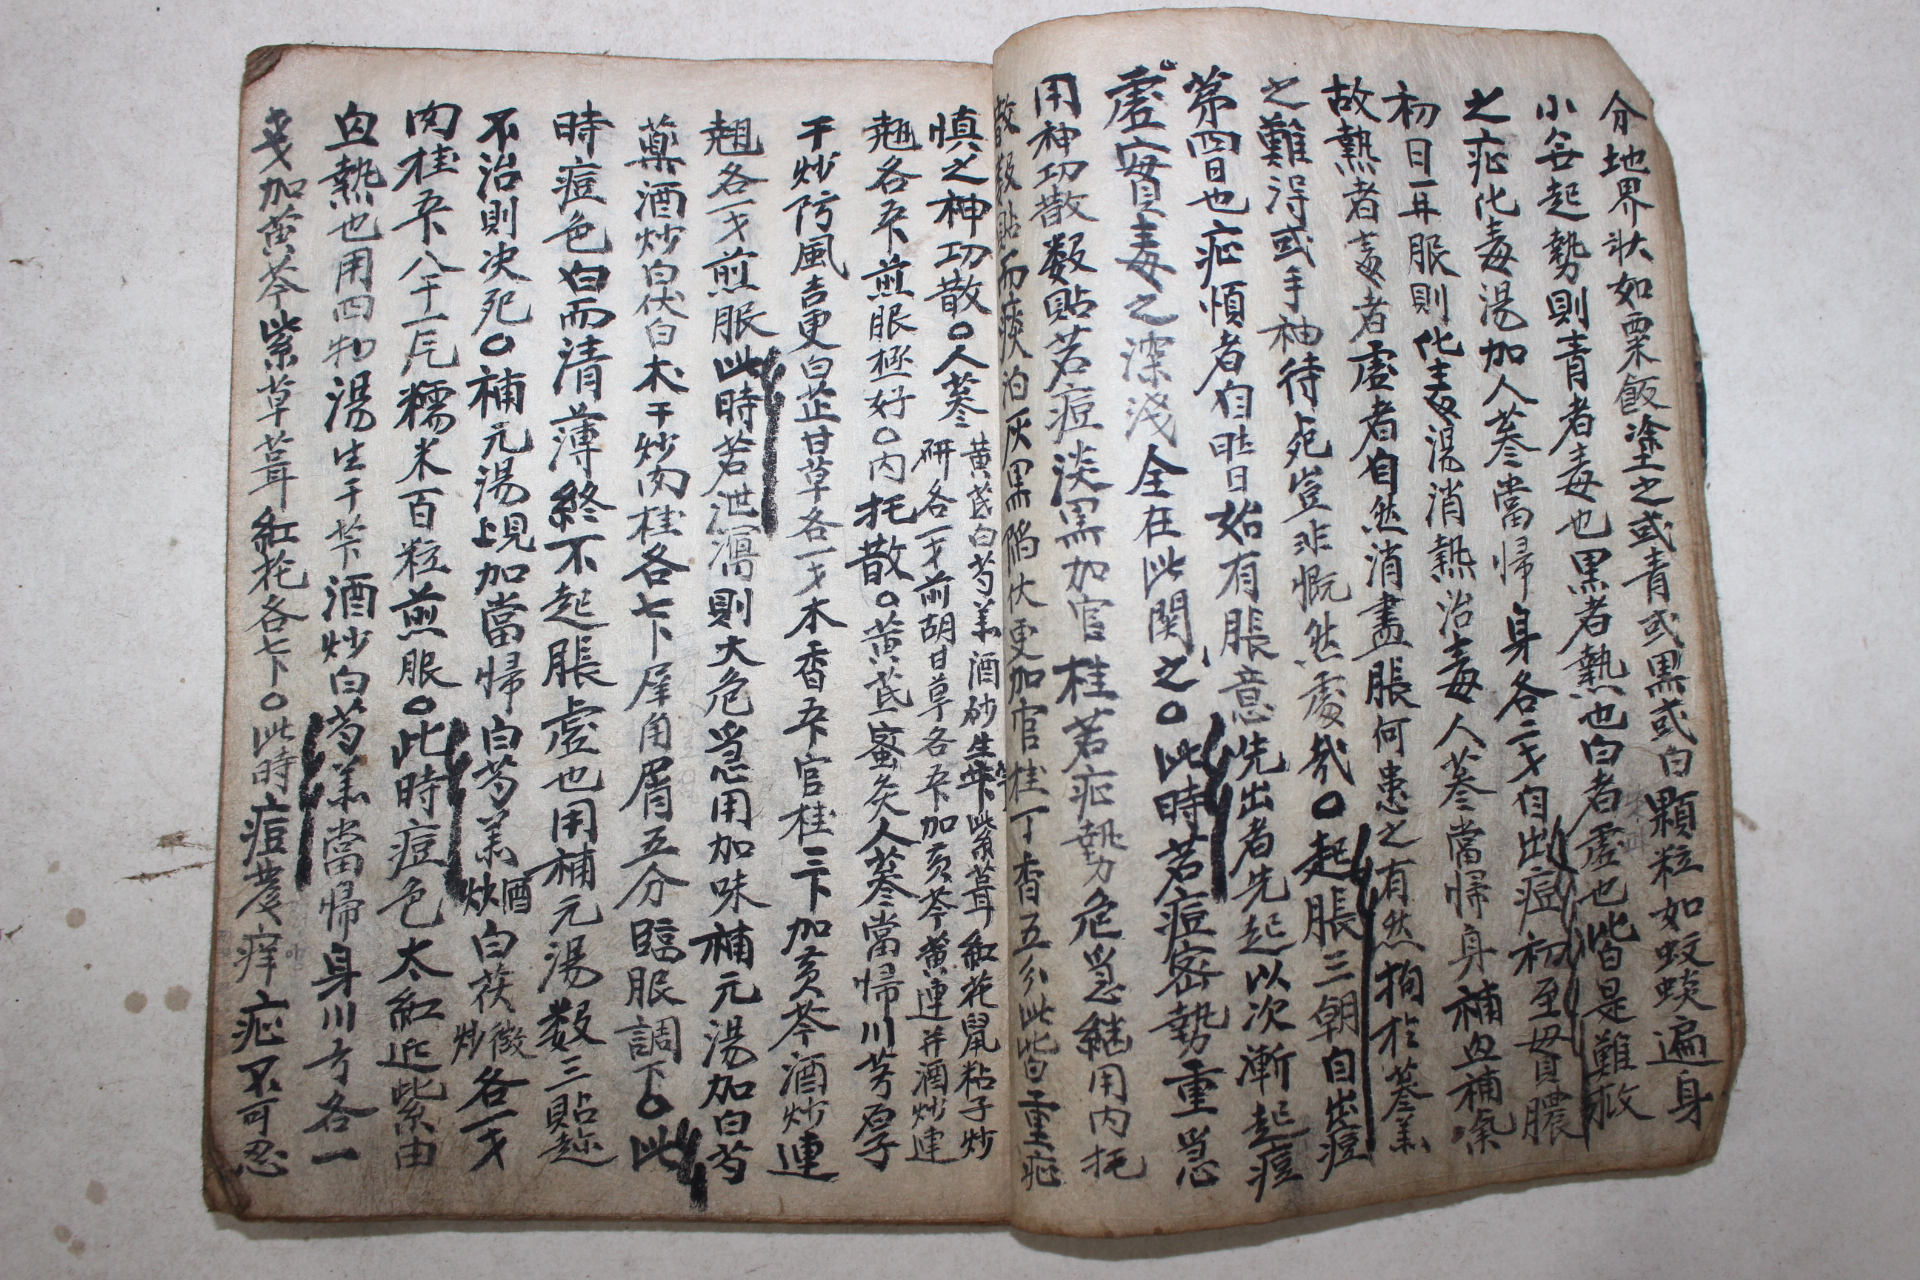 分地界狀如粟飯塗之或青或黑或白顆粒如蚊蚤遍身
小無起勢則青者毒也黑者熱也白者虛也此皆是難救
之症化毒湯加人蔘當歸身各二戔自出痘初至貫膿
初日一再服則化毒湯消熱治毒人蔘當歸身補血補氣
故熱者毒者虛者自然消盡脹何患之有然拘於蔘羔
之難得或手袖待死豈非慨然處哉○起脹三朝自出痘
第四日也症順者自昨日始有脹意先出者先起以次漸起痘
虛實毒之深淺全在此関之○此時若痘密勢重急
用神功散數貼若痘淡黑加官桂若症勢危急継用內托
散數貼而痰泊灰黑陷伏更加官桂丁香五分此皆重症
愼之神功散○人蔘黃芪白芍羔酒炒生芐紫葺紅花鼠粘子炒
研各一戔前胡甘草各五卜加黃芩黃連并酒炒連
翹各五卜煎服極好○內托散○黃芪蜜灸人蔘當歸川芎厚
干炒防風吉更白芷甘草各一戔木香五卜官桂三卜加黃芩酒炒連
翹各一戔煎服此時若泄瀉則大危急用加味補元湯加白芍
藥酒炒白伏白朮干炒肉桂各七卜犀角屑五分臨服調下○此
時痘色白而淸薄終不起脹虛也用補元湯数三貼
不治則決死○補元湯上見加當歸白芍羔酒炒白茯微炒各一戔
肉桂五卜八干一片糯米百粒煎服○此時痘色太紅近紫由
血熱也用四物湯生干芐酒炒白芍羔當歸身川芎各一
戔加黃芩紫草葺紅花各七卜○此時痘發痒症不可忍